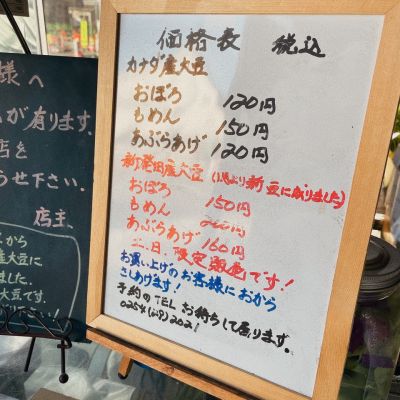 様へ
が有ります。
店を
らせ下さい。
店主、
から
産大豆に
ました。
大豆です。
価格表 税込
カナダ産大豆
おぼろ 120円
もめん 150円
あぶらあげ 120円
新発田産大豆(1月より新豆に成りました)
おぼろ 150円
もめん 200円
あぶらあげ 160円
土、日、限定販売です!
お買い上げのお客様におから
さしあげます!
予約のTEL お待ちして居ります。
0254 2021